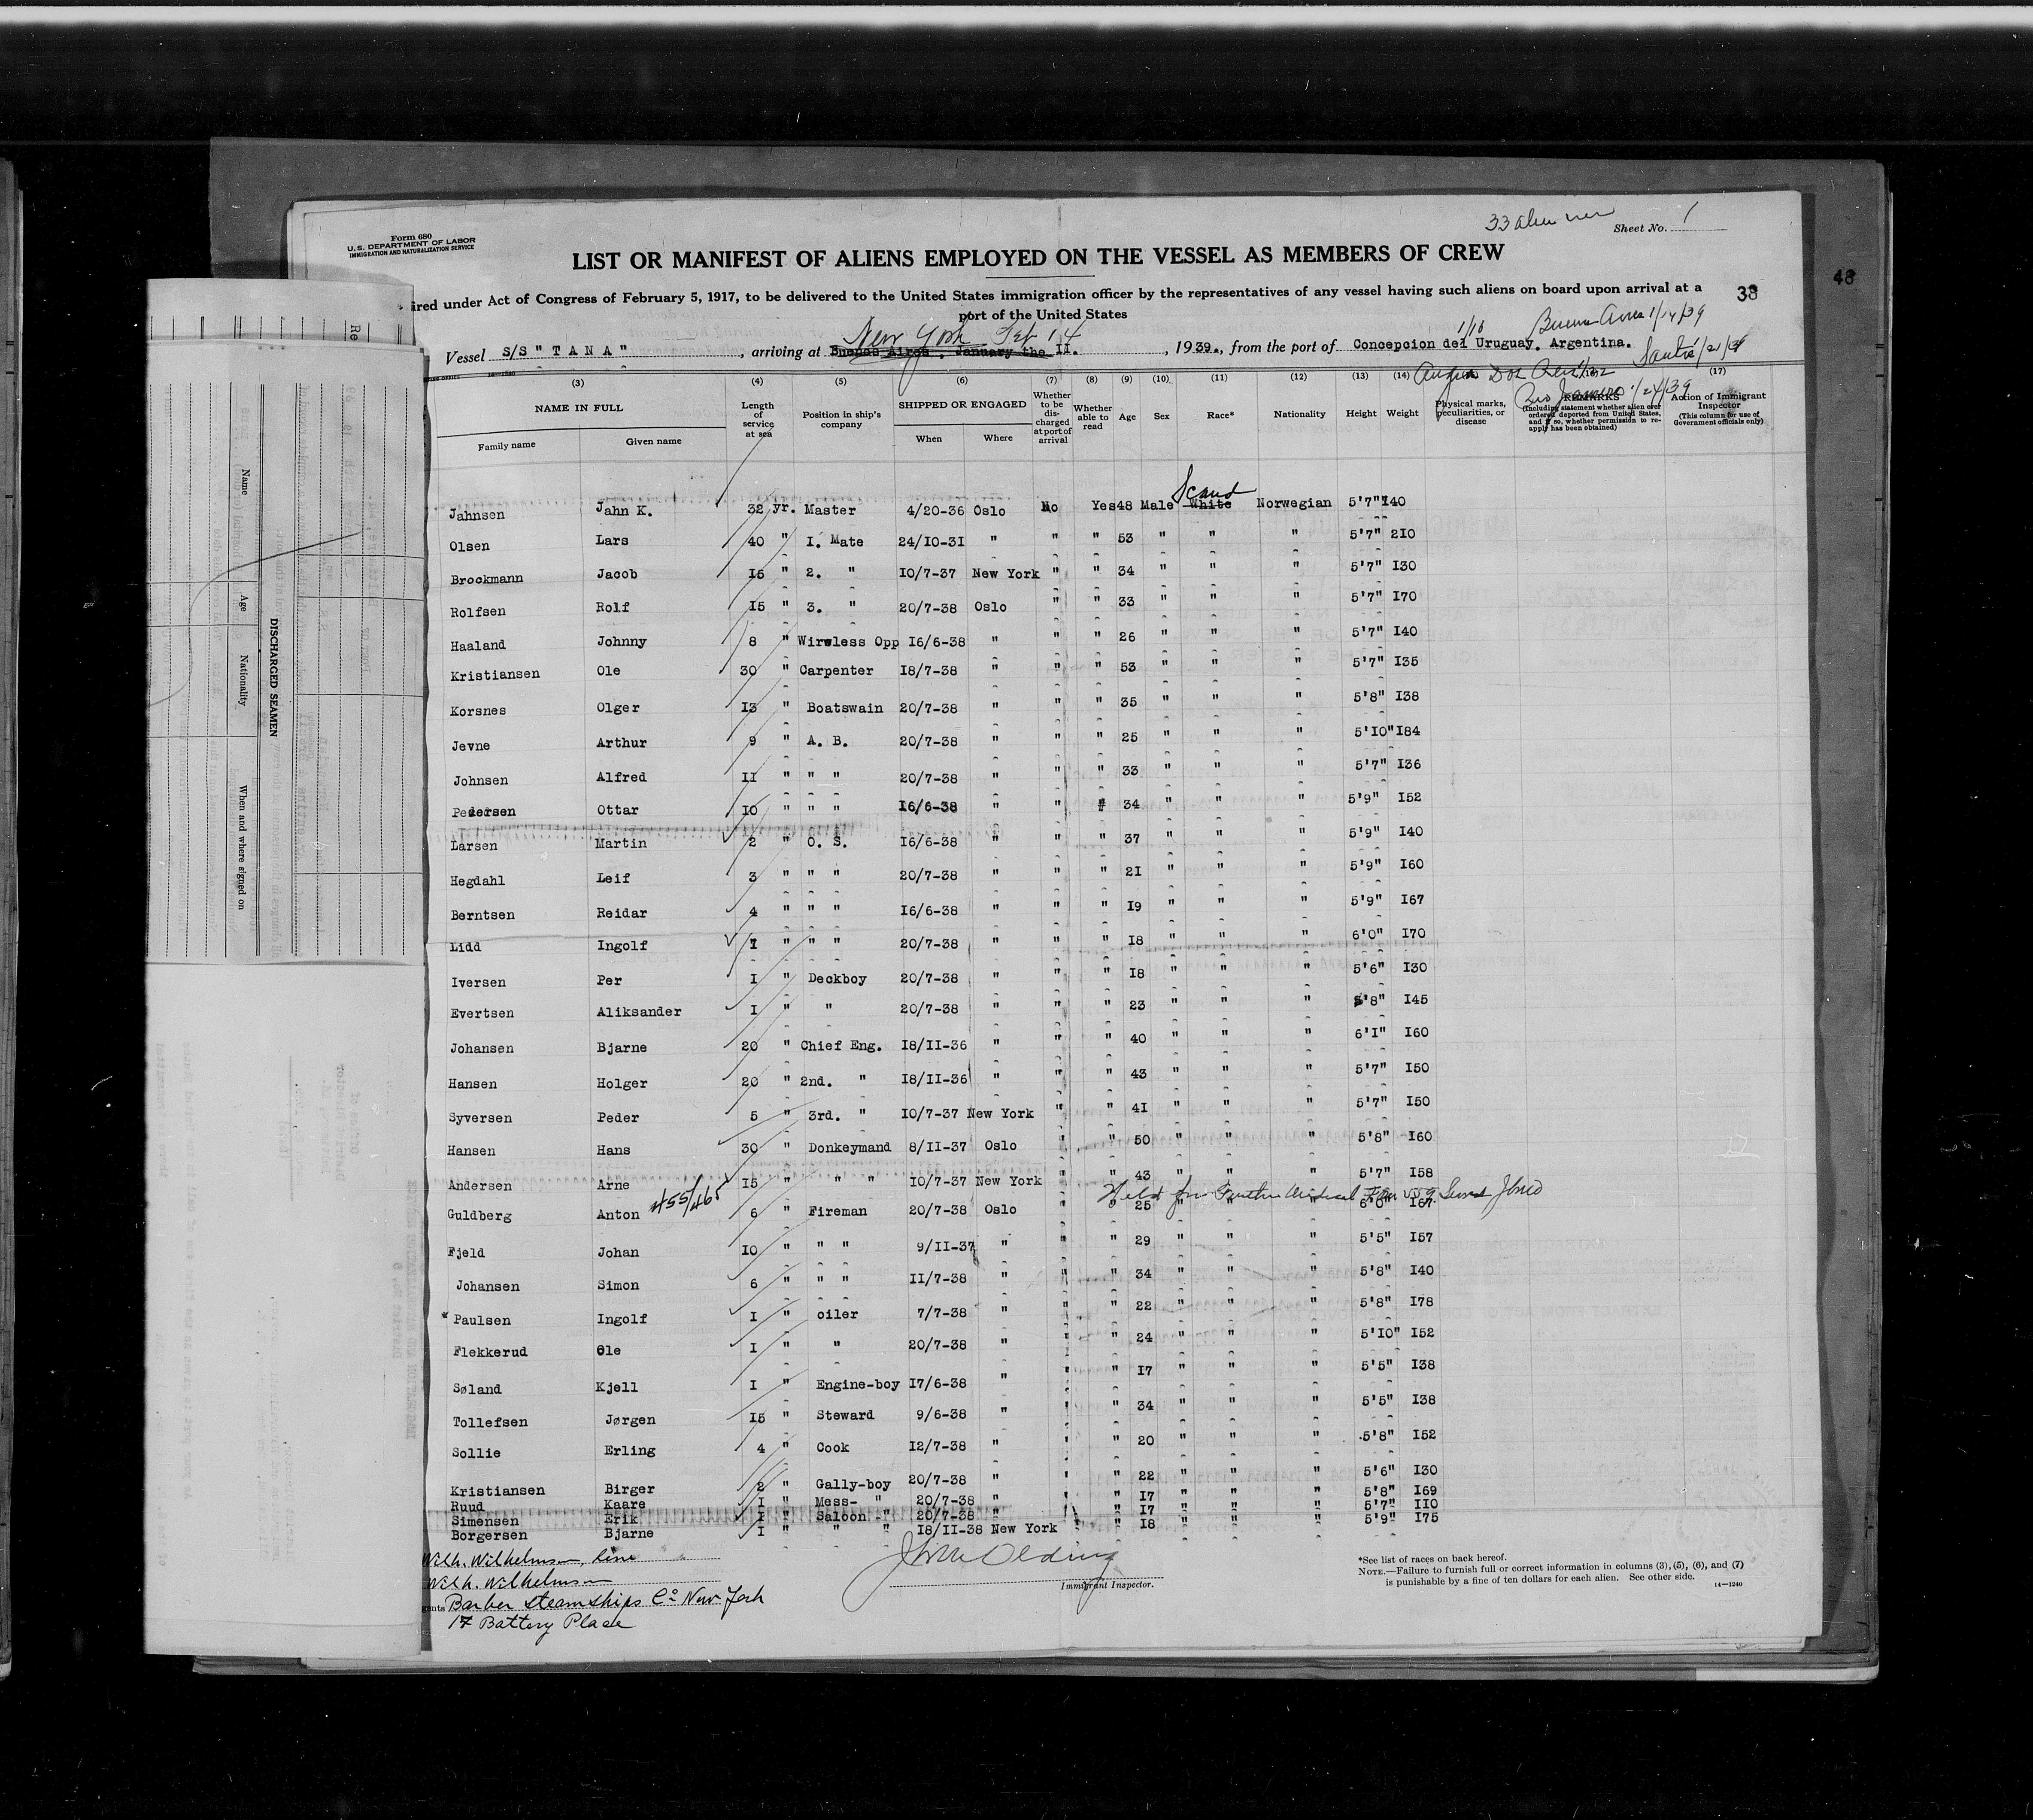 33 alien
Sheet No. 1
Form 680
U.S. DEPARTMENT OF LABOR
IMMIGRATION AND NATURALIZATION SERVICE
LIST OR MANIFEST OF ALIENS EMPLOYED ON THE VESSEL AS MEMBERS OF CREW
48
38
ired under Act of Congress of February 5, 1917, to be delivered to the United States immigration officer by the representatives of any vessel having such aliens on board upon arrival at a
port of the United States
New York Feb 14
1/10 Buenos Aires 1/14/39
Vessel S/S " T A N A ", arriving at Buenos Aires, January the II., 1939., from the port of Concepcion del Uruguay. Argentina. Santos 1/21/39
Angra Dos Reis 1/22
Rio Janeiro 1/24/39
(3) (4) (5) (6) (7) (8) (9) (10) (11) (12) (13) (14) (17)
NAME IN FULL
Family name Given name
Length of service at sea
Position in ship's company
SHIPPED OR ENGAGED
When Where
Whether to be discharged at port of arrival
Whether able to read
Age Sex Race* Nationality Height Weight
Physical marks, peculiarities, or disease
REMARKS
(Including statement whether alien ever ordered deported from United States, and if so, whether permission to reapply has been obtained)
Action of Immigrant Inspector
(This column for use of Government officials only)
Scand
Jahnsen Jahn K. 32 yr. Master 4/20-36 Oslo No Yes 48 Male White Norwegian 5'7" I40
Olsen Lars 40 " I. Mate 24/10-31 " " " 53 " " " 5'7" 2I0
Brockmann Jacob I5 " 2. " I0/7-37 New York " " 34 " " " 5'7" I30
Rolfsen Rolf I5 " 3. " 20/7-38 Oslo " " 33 " " " 5'7" I70
Haaland Johnny 8 " Wireless Opp I6/6-38 " " " 26 " " " 5'7" I40
Kristiansen Ole 30 " Carpenter I8/7-38 " " " 53 " " " 5'7" I35
Korsnes Olger I3 " Boatswain 20/7-38 " " " 35 " " " 5'8" I38
Jevne Arthur 9 " A. B. 20/7-38 " " " 25 " " " 5'I0" I84
Johnsen Alfred II " " " 20/7-38 " " " 33 " " " 5'7" I36
Pedersen Ottar I0 " " " I6/6-38 " " " 34 " " " 5'9" I52
Larsen Martin 2 " O. S. I6/6-38 " " " 37 " " " 5'9" I40
Hegdahl Leif 3 " " " 20/7-38 " " " 2I " " " 5'9" I60
Berntsen Reidar 4 " " " I6/6-38 " " " I9 " " " 5'9" I67
Lidd Ingolf I " " " 20/7-38 " " " I8 " " " 6'0" I70
Iversen Per I " Deckboy 20/7-38 " " " I8 " " " 5'6" I30
Evertsen Aliksander I " " 20/7-38 " " " 23 " " " 5'8" I45
Johansen Bjarne 20 " Chief Eng. I8/II-36 " " " 40 " " " 6'I" I60
Hansen Holger 20 " 2nd. " I8/II-36 " " " 43 " " " 5'7" I50
Syversen Peder 5 " 3rd. " I0/7-37 New York " " 4I " " " 5'7" I50
Hansen Hans 30 " Donkeymand 8/II-37 Oslo " " 50 " " " 5'8" I60
Andersen Arne I5 " " " I0/7-37 New York " " 43 " " " 5'7" I58
Held for Further Medical
Guldberg Anton 6 " Fireman 20/7-38 Oslo " " 25 " " " 6'0" I67
Fjeld Johan I0 " " " 9/II-37 " " " 29 " " " 5'5" I57
Johansen Simon 6 " " " II/7-38 " " " 34 " " " 5'8" I40
Paulsen Ingolf I " oiler 7/7-38 " " " 22 " " " 5'8" I78
Flekkerud Ole I " " 20/7-38 " " " 24 " " " 5'I0" I52
Søland Kjell I " Engine-boy I7/6-38 " " " I7 " " " 5'5" I38
Tollefsen Jørgen I5 " Steward 9/6-38 " " " 34 " " " 5'5" I38
Sollie Erling 4 " Cook I2/7-38 " " " 20 " " " 5'8" I52
Kristiansen Birger 2 " Gally-boy 20/7-38 " " " 22 " " " 5'6" I30
Ruud Kaare I " Mess- " 20/7-38 " " " I7 " " " 5'8" I69
Simensen Erik I " Saloon-" 20/7-38 " " " I7 " " " 5'7" II0
Borgersen Bjarne I " " " I8/II-38 New York " " I8 " " " 5'9" I75
Wilh. Wilhelmsen, line
Wilh. Wilhelmsen
Barber Steamships Co New York
17 Battery Place
Immigrant Inspector.
*See list of races on back hereof.
NOTE.—Failure to furnish full or correct information in columns (3), (5), (6), and (7)
is punishable by a fine of ten dollars for each alien. See other side.
14—1240
DISCHARGED SEAMEN
Name
Age
Nationality
When and where signed on